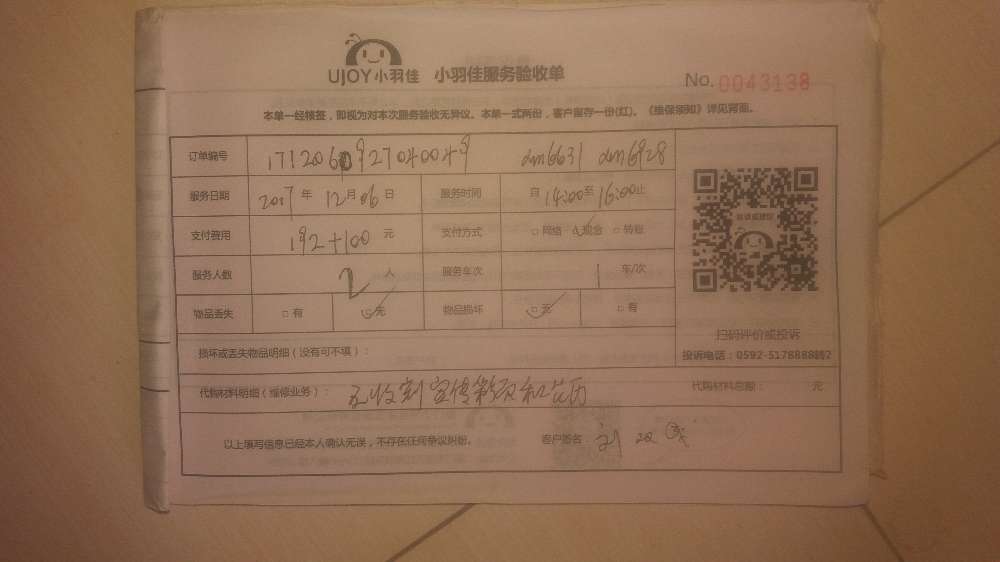 UJOY小羽佳 小羽佳服务验收单 No. 0043138
本单一经核签，即视为对本次服务验收无异议。本单一式两份，客户留存一份(红)。《维保须知》详见背面。
订单编号 dm6631 dm6928
服务日期 2017年12月06日 服务时间 自14:00至16:00止
支付费用 192+100元 支付方式 □网络 □现金 □转账
服务人数 2人 服务车次 1车/次
物品丢失 □有 □无 物品损坏 □无 □有
扫码评价或投诉
损坏或丢失物品明细（没有可不填）： 投诉电话：0592-5178888转2
代购材料明细（维修业务）： 收到宣传 和 代购材料总额： 元
以上填写信息已经本人确认无误，不存在任何争议纠纷。 客户签名：